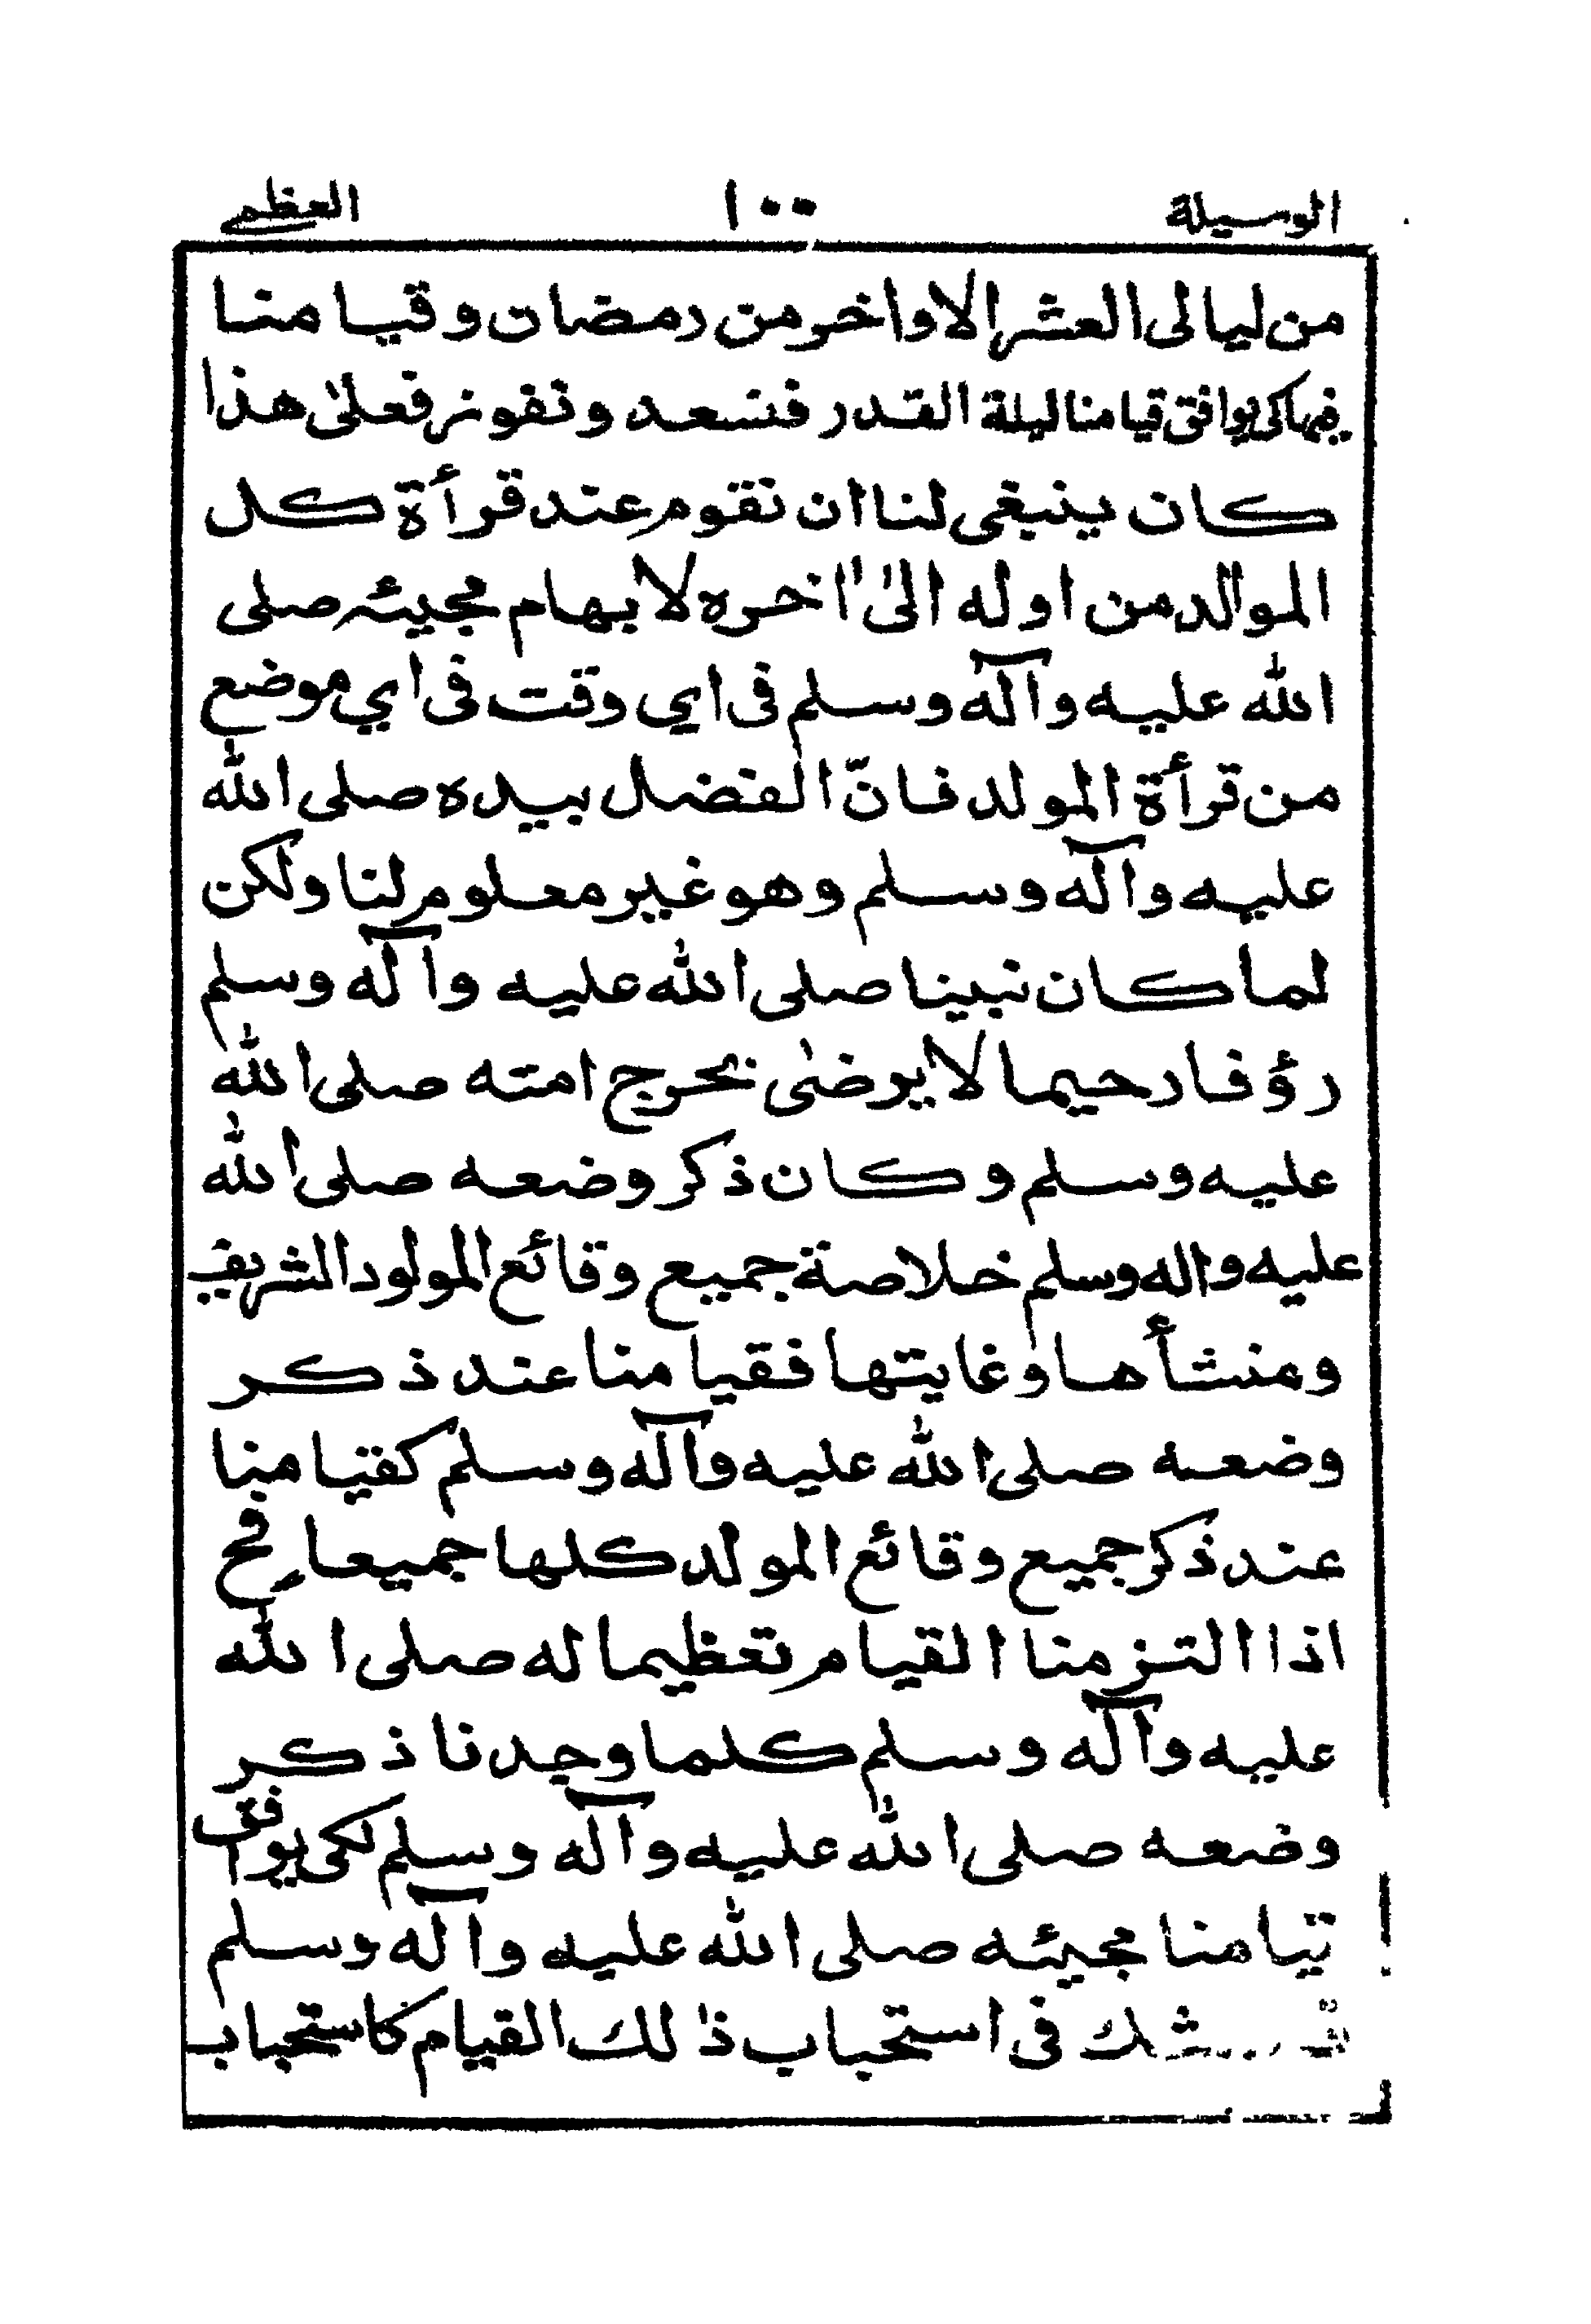 الوسيلة ١٠٠ العظمى
من ليالى العشر الاواخر من رمضان و قيامنا
فيها كى يوافق قيامنا ليلة القدر فنسعد و نفوز فعلىٰ هذا
كان ينبغى لنا ان نقوم عند قرأة كل
الموالد من اوله الىٰ اٰخره لابهام مجيئه صلى
الله عليه وآله وسلم فى اي وقت فى اي موضع
من قرأة المولد فانّ الفضل بيده صلى الله
عليه وآله وسلم وهو غير معلوم لنا ولكن
لما كان نبينا صلى الله عليه وآله وسلم
رؤفا رحيما لا يرضىٰ بحرج امته صلى الله
عليه وسلم و كان ذكر وضعه صلى الله
عليه واله وسلم خلاصة جميع وقائع المولود الشريف
ومنشأها وغايتها فقيامنا عند ذكر
وضعه صلى الله عليه وآله وسلم كقيامنا
عند ذكر جميع وقائع المولد كلها جميعا فح
اذا التزمنا القيام تعظيما له صلى الله
عليه وآله وسلم كلما وجدنا ذكر
وضعه صلى الله عليه وآله وسلم لكى يوافق
قيامنا مجيئه صلى الله عليه وآله وسلم
شك فى استحباب ذٰلك القيام كاستحباب